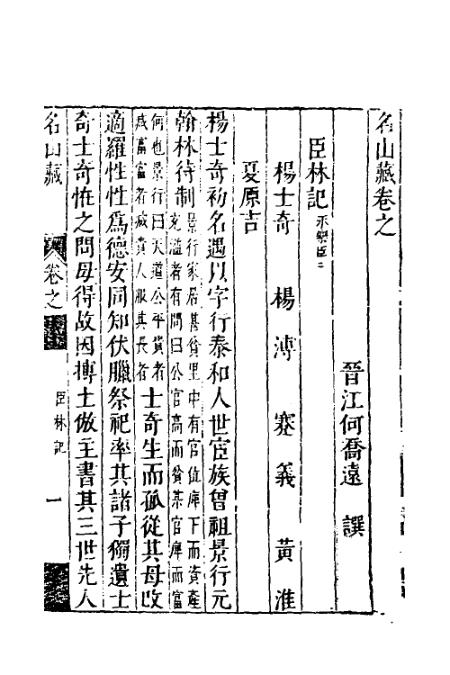 名山藏卷之
晉江何喬遠 譔
臣林記 永樂臣二
楊士奇 楊溥 蹇義 黃淮
夏原吉
楊士奇初名遇以字行泰和人世宦族曾祖景行元
翰林待制景行家居甚貧里中有官位庳下而資產充溢者有問曰公官高而貧某官庳而富
何也景行曰天道公平貴者或富富者或貴人服其長者士奇生而孤從其母改
適羅性性為德安同知伏臘祭祀率其諸子獨遺士
奇士奇恠之問母得故因摶土倣主書其三世先人
名山藏 卷之 臣林記 一